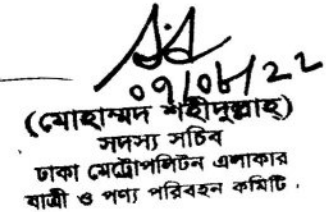 ০৭/০৮/২২
(মোহাম্মদ শহীদুল্লাহ)
সদস্য সচিব
ঢাকা মেট্রোপলিটন এলাকার
যাত্রী ও পণ্য পরিবহন কমিটি.